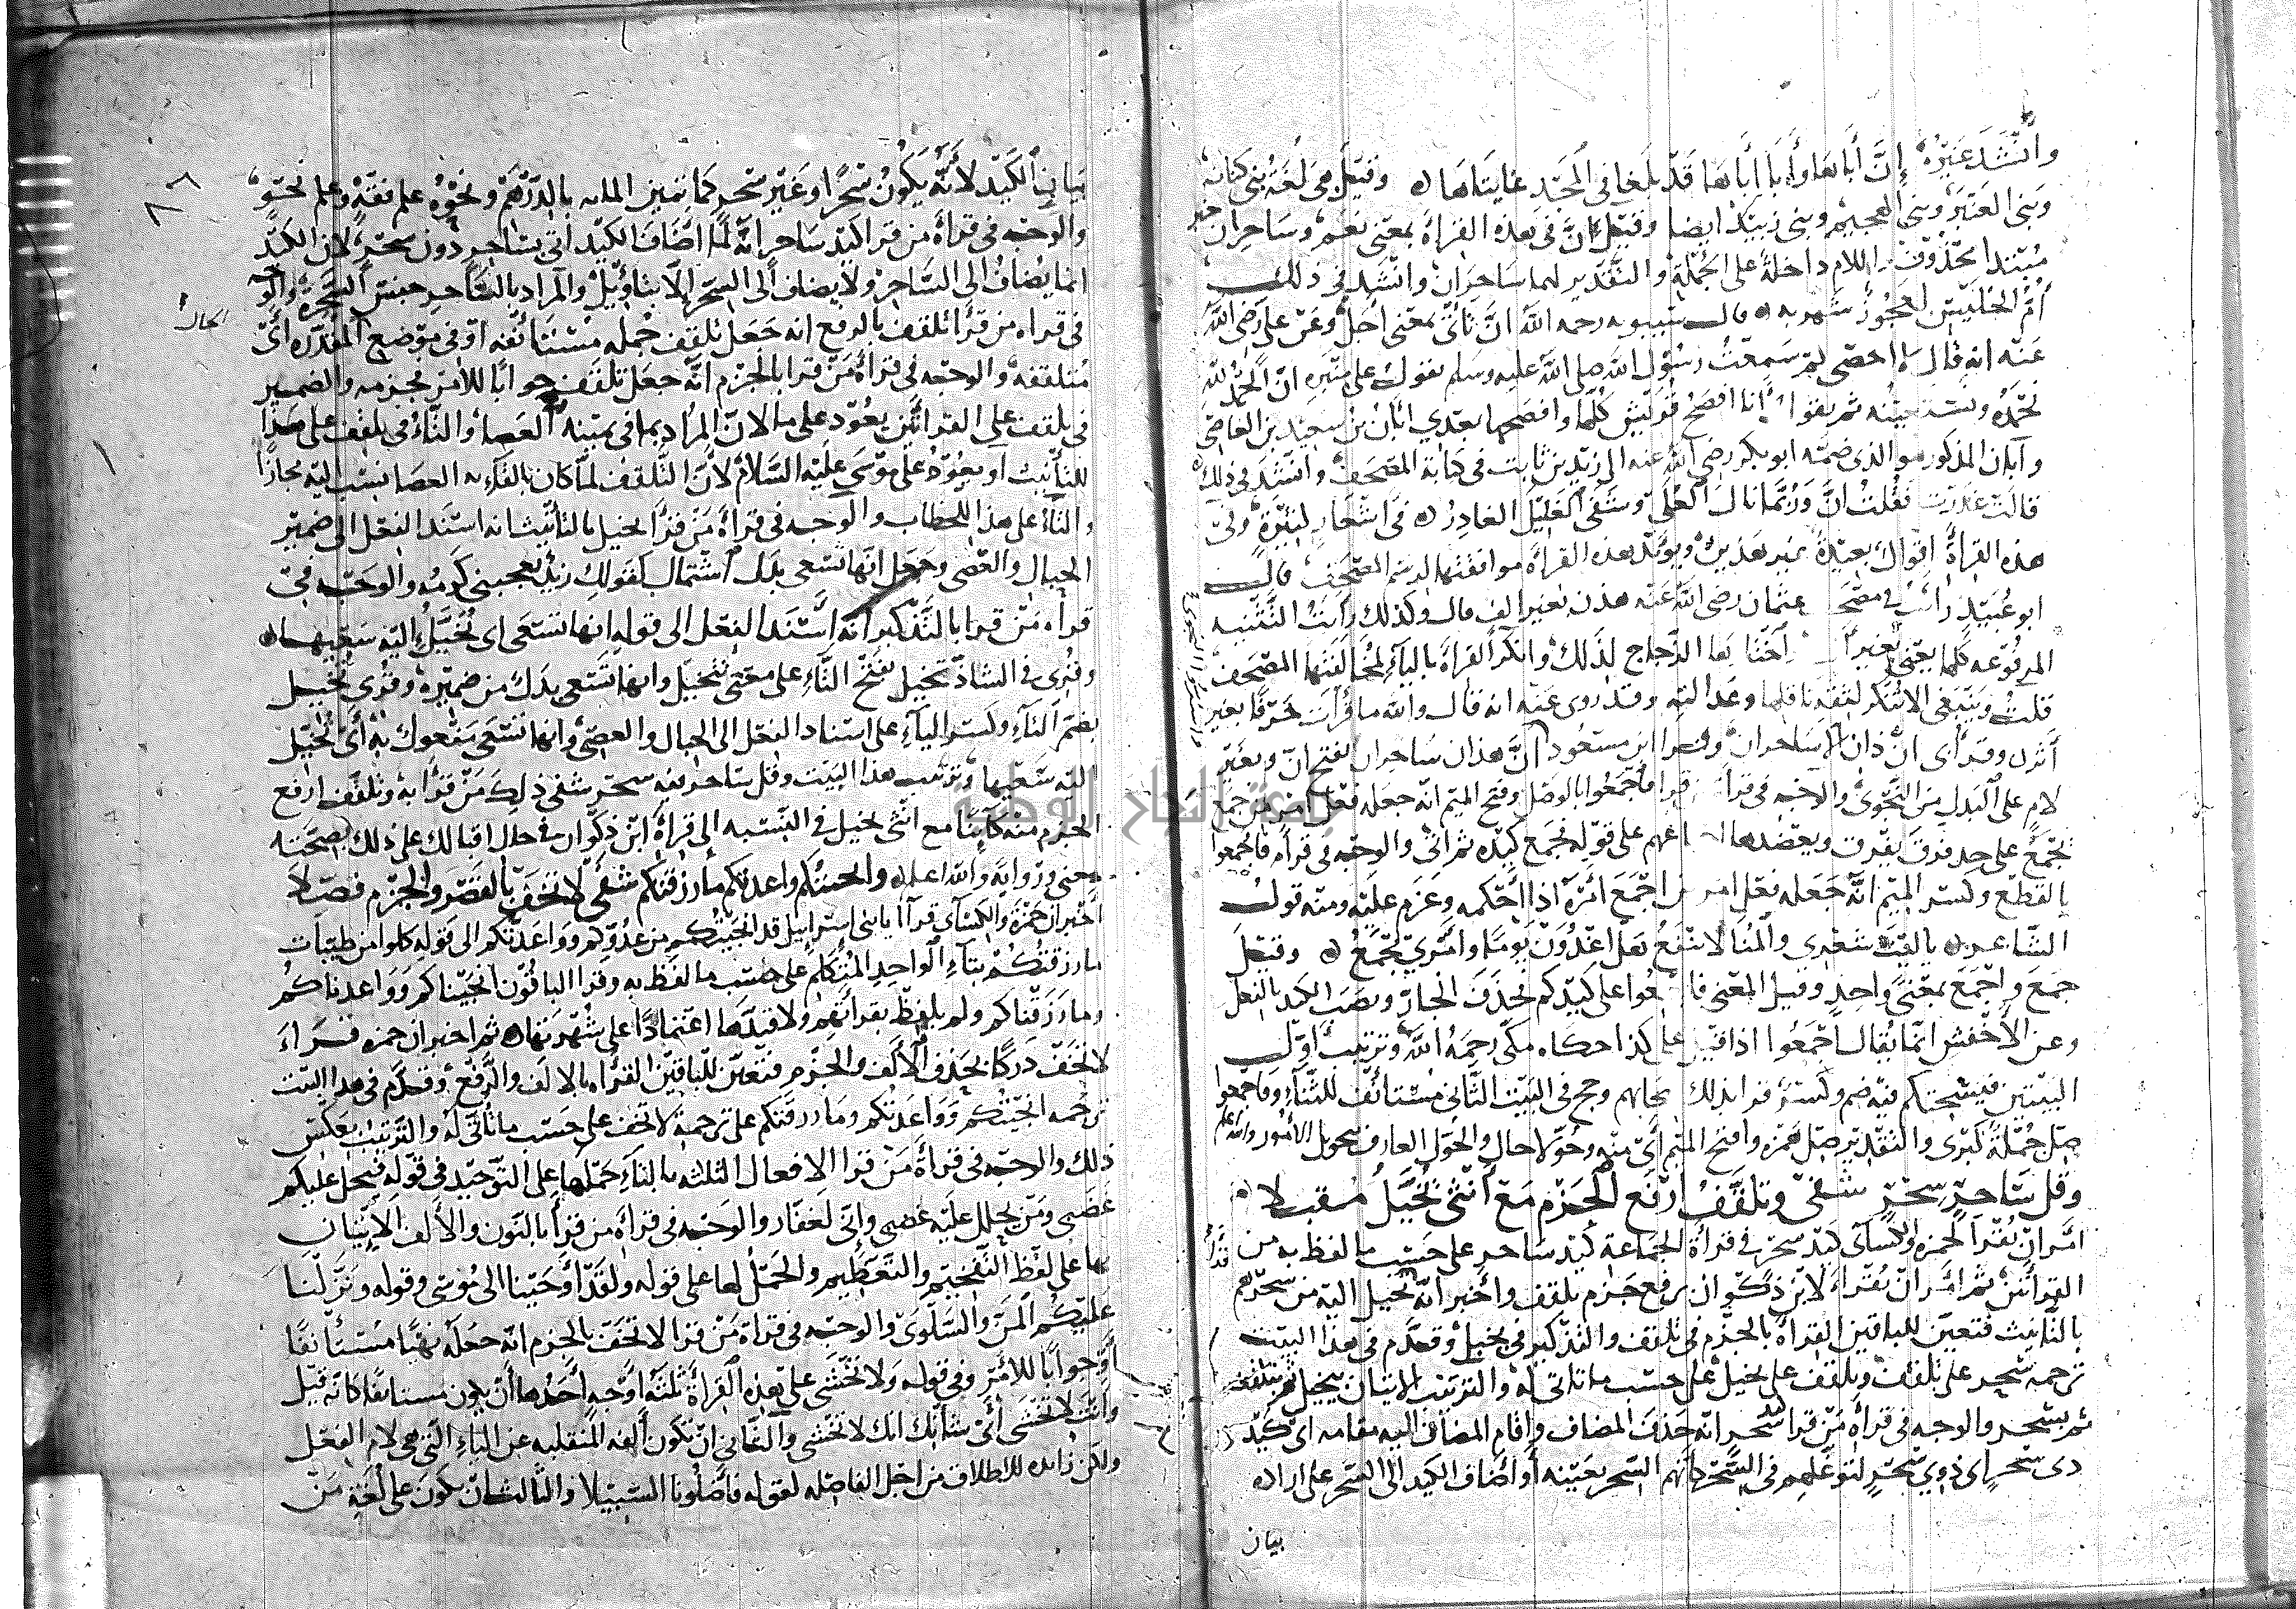 وانشد غيره إن أباها وأبا أباها قد بلغا في المجد غايتاها وقيل هي لغة بني كنانه
وبني العنبر وبني الهجيم وبني زبيد ايضا وقيل ان في هذه القراة بمعنى نعم وساحران خبر
مبتدا محذوف واللام داخلة على الجملة والتقدير لهما ساحران وانشد في ذلك
أم الحليس لعجوز شهربه قال سيبويه رحمه الله ان تاتي بمعنى اجل وعن علي رضي الله
عنه انه قال لا احصي لم سمعت رسول الله صلى الله عليه وسلم يقول على منبره ان الحمد لله
نحمده ونستعينه ثم يقول أنا افصح قريش كلها وافصحها بعدي ابان بن سعيد بن العاصي
وأبان المذكور هو الذي ضمه ابو بكر رضي الله عنه الى زيد بن ثابت في كتابة المصحف وانشد في ذلك
قالت غدرت فقلت ان وربما نال العلى وشفى الغليل الغادر في اشعار كثيرة وفي
هذه القراة اقوال بعيدة غير هذين ويؤيد هذه القراة موافقتها لرسم المصحف قال
ابو عبيد رايت في مصحف عثمان رضي الله عنه هذن بغير الف قال وكذلك رأيت التثنيه
المرفوعه كلها يعني بغير الف اختاها الزجاج لذلك وانكر القراة بالياء لمخالفتها المصحف
قلت وينبغي الا تنكر لثقة ناقلها وعدالته وقد روي عنه انه قال والله ما قرأت حرفا بغير
أثر وقرأ أي ان ذان الا ساحران وقرا ابن مسعود أن هذان ساحران بفتح ان وبغير
لام على البدل من النجوى والوجه في قراة من قرا فاجمعوا بالوصل وفتح الميم انه جعله فعل امر من جمع
تجمع على حد فرق يفرق ويعضدها اجماعهم على قوله فجمع كيده ثم اتى والوجه في قراه فاجمعوا
بالقطع وكسر الميم انه جعله فعل امر من اجمع امره اذا أحكمه وعزم عليه ومنه قول
الشاعر يا ليت شعري والمنا لا تنفع هل اغدون يوما وامري مجمع وقيل
جمع واجمع بمعنى واحد وقيل المعنى فاجمعوا على كيدكم فحذف الجار ونصب الكيد بالفعل
وعن الأخفش انما يقال اجمعوا اذا قيل على كذا حكاه مكي رحمه الله وترتيب أول
البيتين فيسحتكم فيه ضم وكسر قرا بذلك صحابهم وحج في البيت الثاني مستأنف للثناء وفاجمعوا
صل جملة كبرى والتقدير صل همزه وافتح الميم أي منه وحول حال والحول العارف بتحويل الأمور والله اعلم
وقل ساحر سحر شفى وتلقف ارفع الجزم مع أنثى تخيل مقبلا
امر ان يقرا لحمزه والكسائي كيد سحر في قراة الجماعة كيد ساحر على حسب ما لفظ به من
القراتين ثم امر ان يقراء لابن ذكوان برفع جزم تلقف وأخبر انه تخيل اليه من سحرهم
بالتأنيث فتعين للباقين القراة بالجزم في تلقف والتذكير في يخيل وقدم في هذا البيت
ترجمه سحر على تلقف وتلقف على يخيل على حسب ما تاتى له والترتيب الاتيان بيخيل ثم بتلقف
ثم بسحر والوجه في قراة من قرا سحر انه حذف المضاف واقام المضاف اليه مقامه اي كيد
ذي سحر اي ذوي سحر لتوغلهم في السحر كأنهم السحر بعينه أو اضاف الكيد الى السحر على اراده
بيان
بيان الكيد لأنه يكون سحرا وغير سحر كما تميز المائه بالدرهم ونحوه علم فقه وعلم نحو
والوجه في قراة من قرا كيد ساحر انه لما اضاف الكيد اتى بساحر دون سحر لان الكيد
انما يضاف الى الساحر ولا يضاف الى السحر الا بتأويل والمراد بالساحر جنس السحرة والوجه
في قراه من قرأ تلقف بالرفع انه جعل تلقف جمله مستأنفه او في موضع الحال المقدره أي
متلقفه والوجه في قراة من قرا بالجزم انه جعل تلقف جوابا للامر فجزمه والضمير
في تلقف على القراتين يعود على ما لان المراد بما في يمينه العصا والتاء في تلقف على هذا
للتأنيث او يعود على موسى عليه السلام لأن التلقف لما كان بالقائه العصا نسب اليه مجازا
والتاء على هذا للخطاب والوجه في قراة من قرا تخيل بالتأنيث انه اسند الفعل الى ضمير
الحبال والعصي وجعل انها تسعى بدل اشتمال كقولك زيد يعجبني كرمه والوجه في
قراه من قرا بالتذكير انه اسند الفعل الى قوله انها تسعى اي يخيل اليه سعيها
وقري في الشاذ تخيل بفتح التاء على معنى تتخيل وانها تسعى بدل من ضميره وقري تخيل
بضم التاء وكسر الياء على اسناد الفعل الى الحبال والعصي وانها تسعى مفعول به أي تخيل
اليه سعيها وترتيب هذا البيت وقل ساحر فيه سحر شفى ذلك من قرا به وتلقف ارفع
الجزم منه كائنا مع انثى تخيل في النسبه الى قراة ابن ذكوان في حال اقبالك على ذلك لصحته
معنى ورواية والله اعلم وانجيتكم واعدتكم ما رزقتكم شفى لا تخف بالقصر والجزم فصلا
اخبر ان حمزة والكسائي قرآ يا بني اسرائيل قد انجيتكم من عدوكم وواعدتكم الى قوله كلوا من طيبات
ما رزقتكم بتاء الواحد المتكلم على حسب ما لفظ به وقرا الباقون انجيناكم وواعدناكم
وما رزقناكم ولم يلفظ بقراتهم ولا قيدها اعتمادا على شهرتها ثم اخبر ان حمزه قراء
لا تخف دركا بحذف الألف والجزم فتعين للباقين القراه بالالف والرفع وقدم في هذا البيت
ترجمه انجيتكم وواعدتكم وما رزقتكم على ترجمة لا تخف على حسب ما تأتى له والترتيب بعكس
ذلك والوجه في قراة من قرا الافعال الثلثه بالتاء حملها على التوحيد في قوله فيحل عليكم
غضبي ومن يحلل عليه غضبي واني لغفار والوجه في قراة من قرا بالنون والألف الإتيان
بها على لفظ التفخيم والتعظيم والحمل لها على قوله ولقد أوحينا الى موسى وقوله ونزلنا
عليكم المن والسلوى والوجه في قراة من قرا لا تخف بالجزم انه جعله نهيا مستأنفا
أو جوابا للأمر وفي قوله ولا تخشى على هذه القراة ثلثة اوجه أحدها أن يكون مستانفا كانه قيل
وانت لا تخشى أي شأنك انك لا تخشى والثاني ان تكون ألفه المنقلبه عن الياء التي هي لام الفعل
ولكن زائده للاطلاق من اجل الفاصله لقوله فأضلونا السبيلا والثالث ان يكون على لغة من